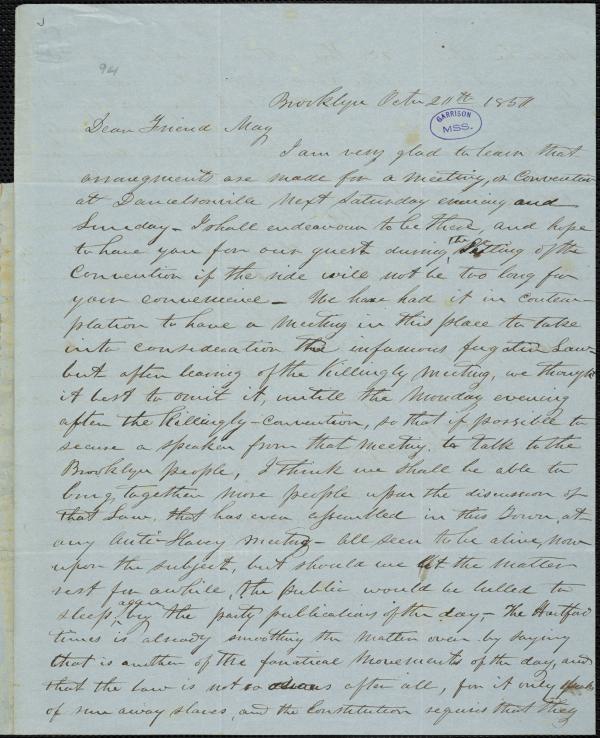 94
Brooklyn Octr 20th 1850
GARRISON
MSS.
Dear Friend May
I am very glad to learn that
arrangments are made for a meeting, or Convention
at Danielsonvile next Saturday evening and
Sunday - I shall endeavour to be there, and hope
to have you for our guest during the Sitting of the
Convention if the ride will not be too long for
your convenience - We have had it in contem-
plation to have a meeting in this place to take
into consideration the infamous fugative Law-
but after learing of the Killingly meeting, we thought
it best to omit it, untill the Monday evening
after the Killingly-Convention, so that if possible to
secure a speaker from that meeting. to talk to the
Brooklyn people, I think we shall be able to
bring together more people upon the discussion of
that Law. that has ever assembled in this Town, at
any Anti-Slavey meeting - all seen to be alive, now
upon the subject, but should we let the matter
rest for awhile, the public would be lulled to
sleep again by the party publications of the day,- The Hartford
times is already smoothing the matter over by saying
that is another of the fanatical movements of the day, and
that the Law is not so after all, for it only
of run away slaves, and the Constitution requires that they